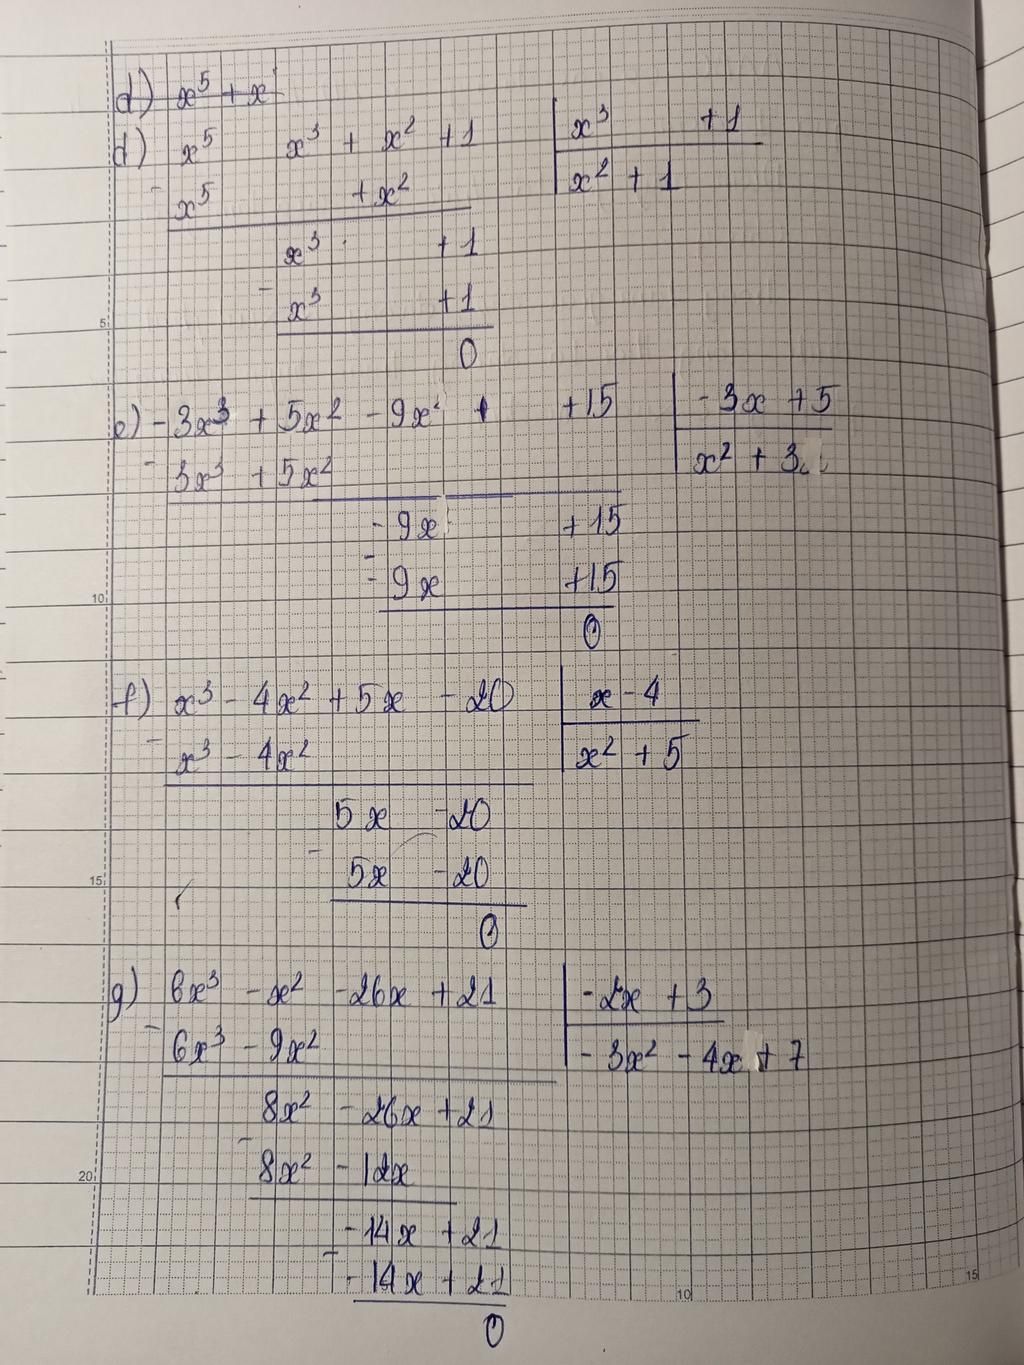 d) x⁵ + x
d) x⁵ x³ + x² + 1 x³ + 1
- x⁵ + x² x² + 1
x³ + 1
- x³ + 1
5
0
e) - 3x³ + 5x² - 9x² + 15 - 3x + 5
- 3x³ + 5x² x² + 3
- 9x + 15
- - 9x + 15
10
0
f) x³ - 4x² + 5x - 20 x - 4
- x³ - 4x² x² + 5
5x - 20
- 5x - 20
15
0
g) 6x³ - x² - 26x + 21 - 2x + 3
- 6x³ - 9x² - 3x² - 4x + 7
8x² - 26x + 21
- 8x² - 12x
20
- 14x + 21
- - 14x + 21
10 15
0